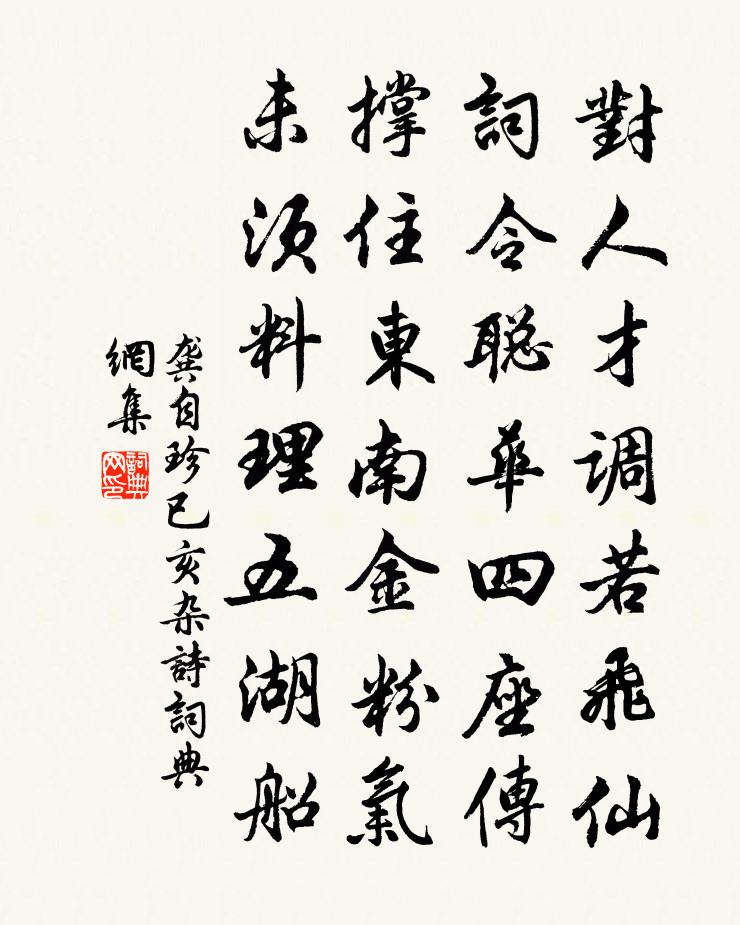 對人才調若飛仙
詞令聪華四座傳
撐住東南金粉氣
未須料理五湖船
龔自珍己亥杂詩詞典
網集
詞典
网印